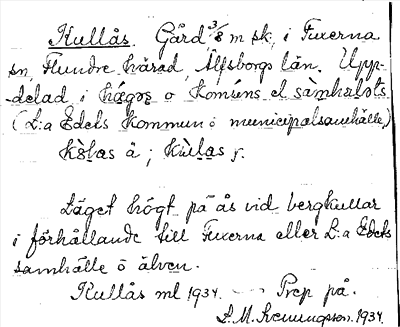 Kullås. Gård 3/8 m sk, i Fuxerna
sn, Flundre härad, Älfsborgs län. Upp-
-delad i o Komúns el sàmhalsts
(L:a Edets Kommun o municipalsamhälle)
Kòlas å ; Kùlas
Läget högt på ås vid bergkullar
i förhållande till Fuxerna eller L:a Edets
samhälle o älven.
Kullås ml 1934. -- Prep på.
L.M. 1934.